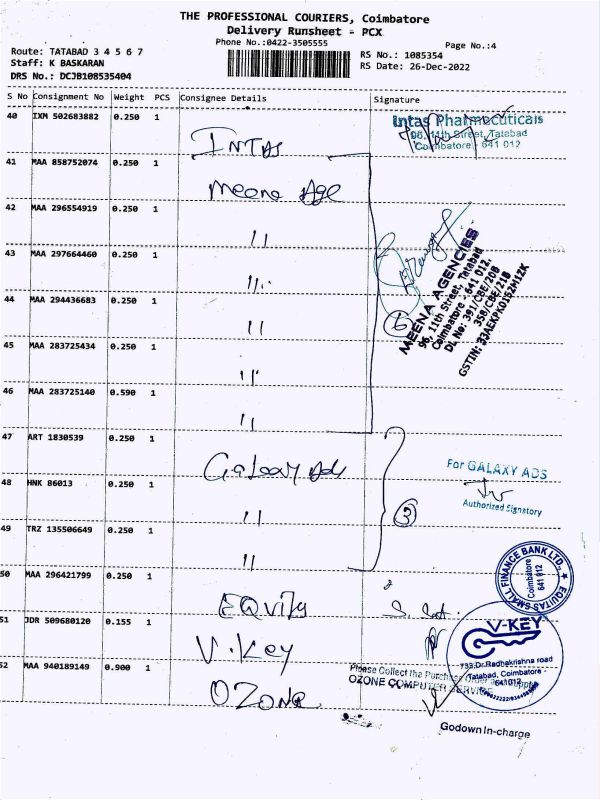 THE PROFESSIONAL COURIERS, Coimbatore
Delivery Runsheet - PCX
Phone No.:0422-3505555
Page No.:4
Route: TATABAD 3 4 5 6 7
Staff: K BASKARAN
DRS No.: DCJB108535404
RS No.: 1085354
RS Date: 26-Dec-2022
S No Consignment No Weight PCS Consignee Details Signature
40 IXM 502683882 0.250 1
INTAS
Intas Pharmaceuticals
96, 11th Street, Tatabad
Coimbatore - 641 012
41 MAA 858752074 0.250 1
Meena Age
42 MAA 296554919 0.250 1
"
43 MAA 297664460 0.250 1
"
44 MAA 294436683 0.250 1
"
45 MAA 283725434 0.250 1
"
46 MAA 283725140 0.590 1
"
6
MEENA AGENCIES
96, 11th Street, Tatabad
Coimbatore - 641 012.
DL No: 391/CBE/20B
358/CBE/21B
47 ART 1830539 0.250 1
Galaxy Ads
48 HNK 86013 0.250 1
"
49 TRZ 135506649 0.250 1
"
3
For GALAXY ADS
Authorized Signatory
50 MAA 296421799 0.250 1
Equitas
EQUITAS SMALL FINANCE BANK LTD.,
Coimbatore
641 012
51 JDR 509680120 0.155 1
V.Key
V-KEY
733, Dr.Radhakrishna road
Tatabad, Coimbatore -
641012
52 MAA 940189149 0.900 1
OZONE
Please Collect the Purchase Order
OZONE COMPUTER SERVICE
Godown In-charge